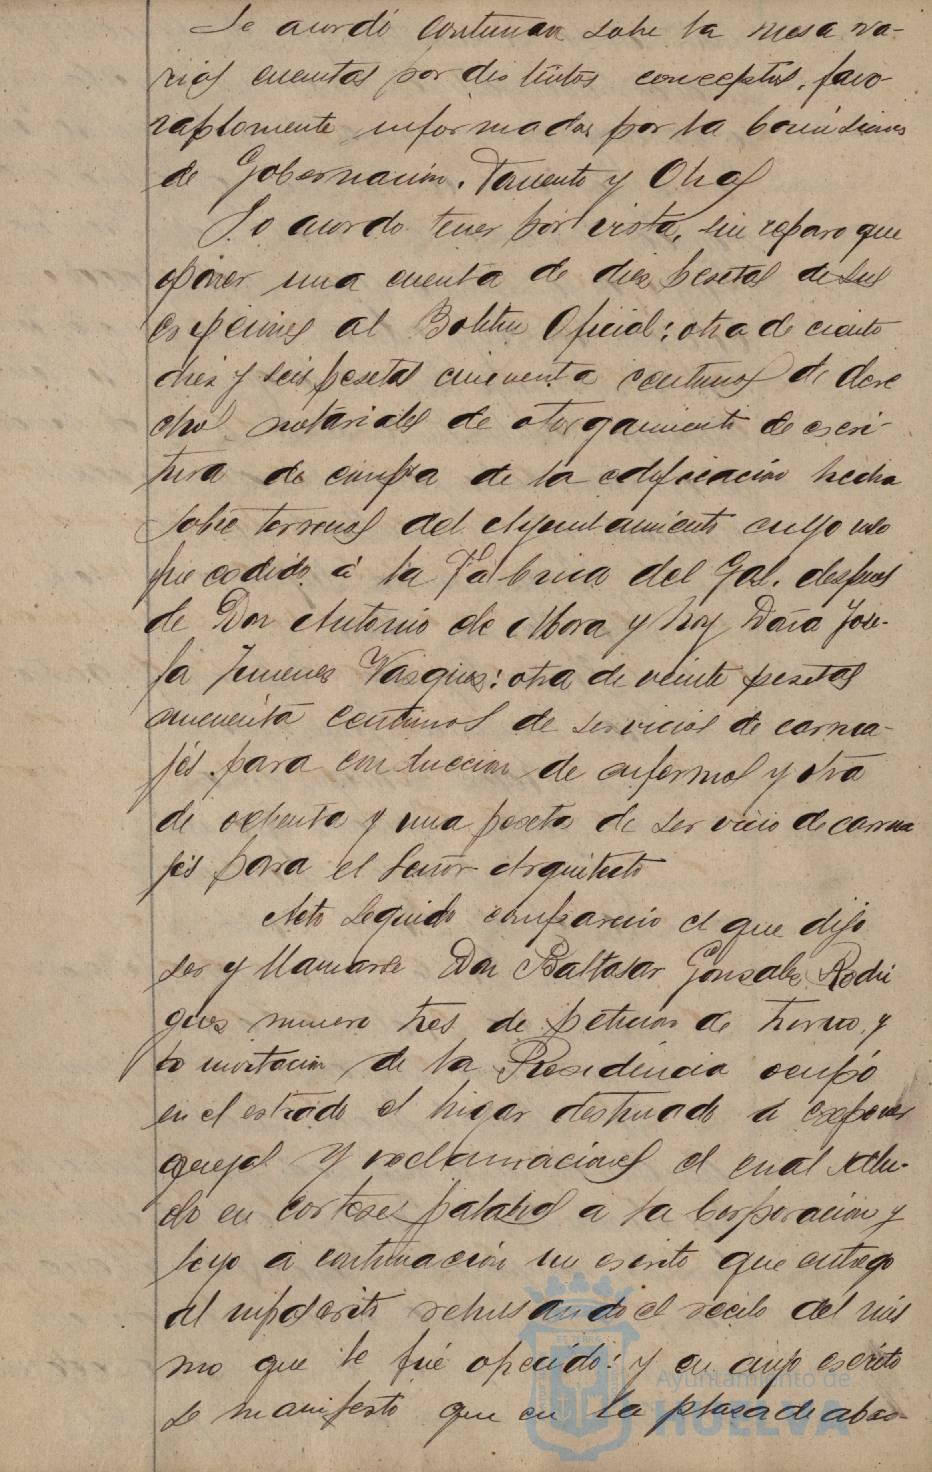 Se acordó continuar sobre la mesa va-
rias cuentas por distintos conceptos, favo-
rablemente informadas por la Comisiones
de Gobernación, Fomento y Obras
Se acordo tener por vista, sin reparo que
oponer una cuenta de diez pesetas de sus
cripciones al Boletin Oficial: otra de ciento
diez y seis pesetas cincuenta centimos de dere
chos notariales de otorgamiento de escri-
tura de compra de la edificación hecha
sobre terrenos del Ayuntamiento cuyo uso
fue cedido á la Fábrica del Gas, despues
de Don Antonio de Mora y hoy Doña Jose-
fa Jimenez Vazquez: otra de veinte pesetas
cincuenta centimos de servicios de carrua-
jes para conducción de enfermos y otra
de ochenta y una pesetas de servicio de carrua
jes para el Señor Arquitecto
Acto seguido compareció el que dijo
ser y llamarse Don Baltasar Gonzalez Rodri
guez numero tres de petición de turno y
to invitación de la Presidencia ocupó
en el estrado el lugar destinado á exponer
quejas y reclamaciones el cual salu-
do en corteses palabras a la Corporación y
leyo a continuación un escrito que entrego
al infrascrito rehusando el recibo del mis
mo que le fué ofrecido: y en cuyo escrito
se manifesto que en la plaza de abas-
Ayuntamiento de
HUELVA